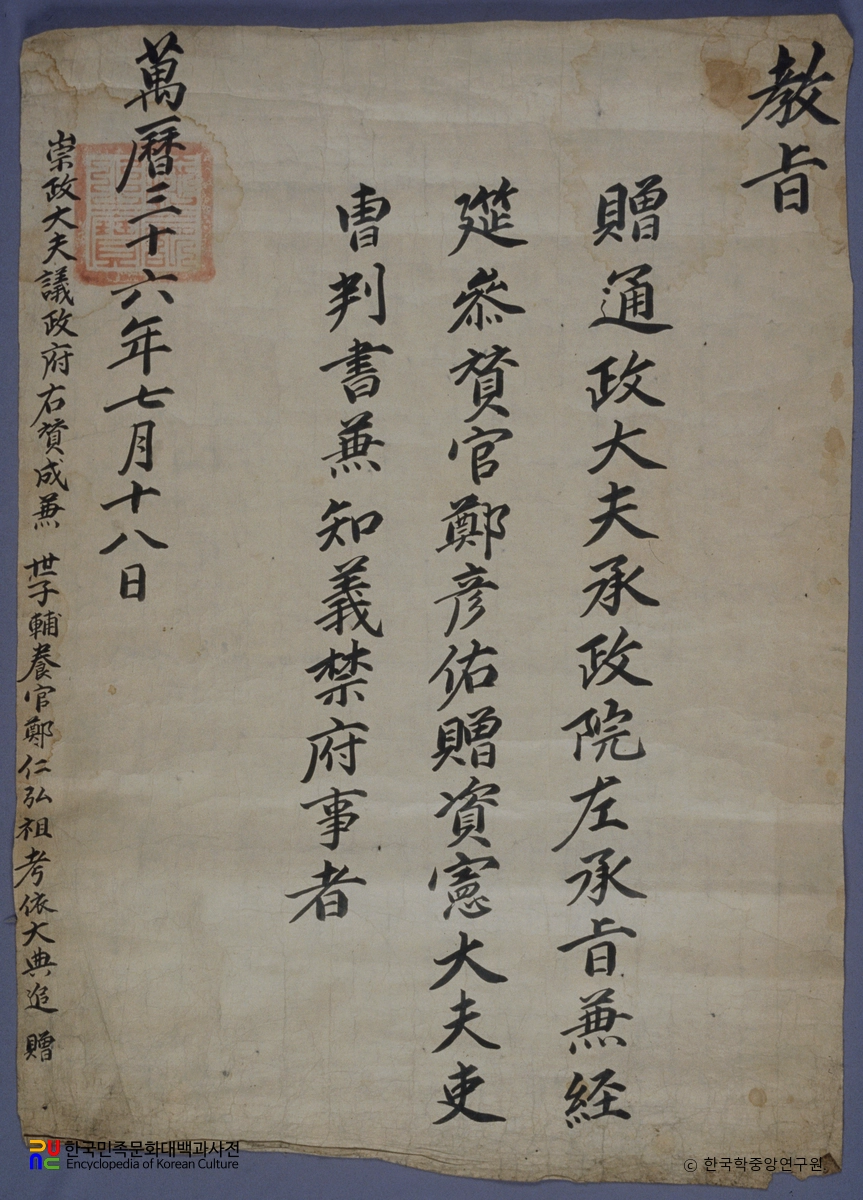 教旨
贈通政大夫承政院左承旨兼経
筵叅賛官鄭彦佑贈資憲大夫吏
曺判書兼知義禁府事者
萬曆三十六年七月十八日
崇政大夫議政府右賛成兼 世子輔養官鄭仁弘祖考依大典追 贈
한국민족문화대백과사전
Encyclopedia of Korean Culture
© 한국학중앙연구원